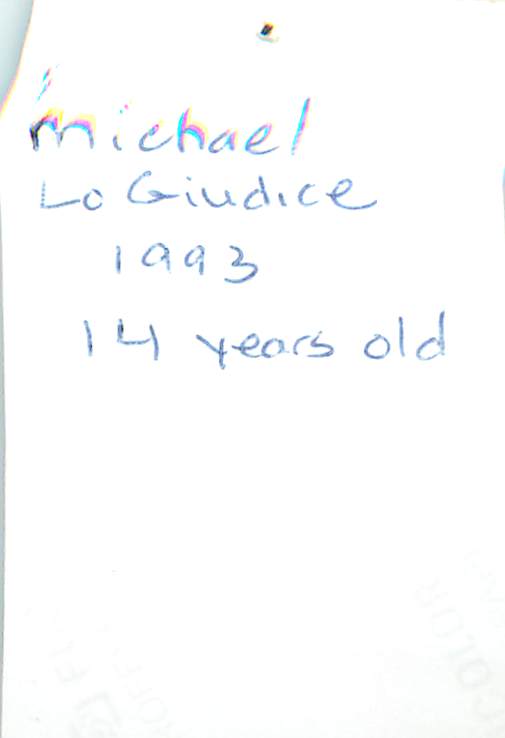 Michael
Lo Giudice
1993
14 years old